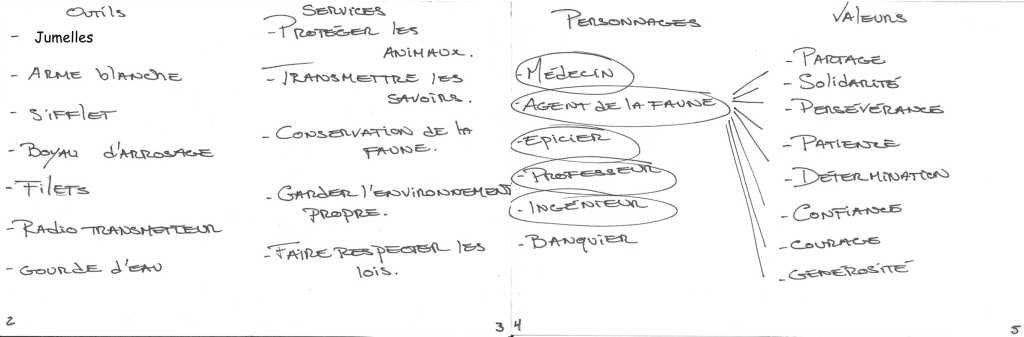 Outils
- Jumelles
- Arme blanche
- Sifflet
- Boyau d'arrosage
- Filets
- Radio transmetteur
- Gourde d'eau
2
Services
- Protéger les
animaux.
- Transmettre les
savoirs.
- Conservation de la
faune.
- Garder l'environnement
propre.
- Faire respecter les
lois.
3
Personnages
- Médecin
- Agent de la faune
- Epicier
- Professeur
- Ingénieur
- Banquier
4
Valeurs
- Partage
- Solidarité
- Persévérance
- Patience
- Détermination
- Confiance
- Courage
- Générosité
5